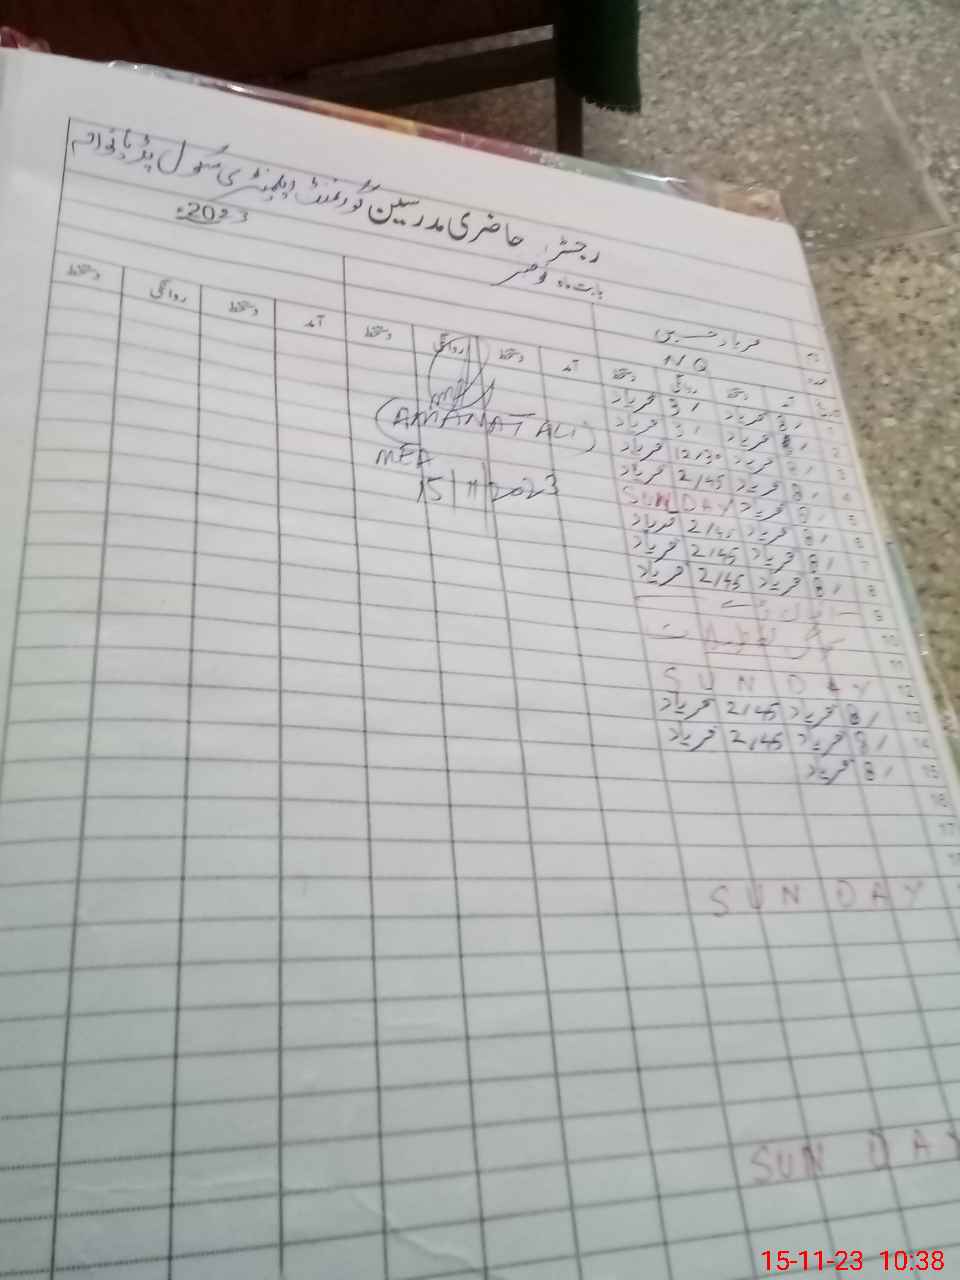 رجسٹر حاضری مدرسین گورنمنٹ ایلیمنٹری سکول
بابت ماہ نومبر 2023ء
فریاد حسین
N Q
آمد دستخط روانگی دستخط آمد دستخط روانگی دستخط آمد دستخط روانگی دستخط
1 8/ فریاد 3/ فریاد
2 8/ فریاد 3/ فریاد
3 8/ فریاد 12/30 فریاد
4 8/ فریاد 2/45 فریاد
5 8/ فریاد SUNDAY
6 8/ فریاد 2/45 فریاد
7 8/ فریاد 2/45 فریاد
8 8/ فریاد 2/45 فریاد
9
10
11
12 SUNDAY
13 8/ فریاد 2/45 فریاد
14 8/ فریاد 2/45 فریاد
15 8/ فریاد
16
17
SUNDAY
SUN DAY
(AMANAT ALI)
MEA
15/11/2023
15-11-23 10:38